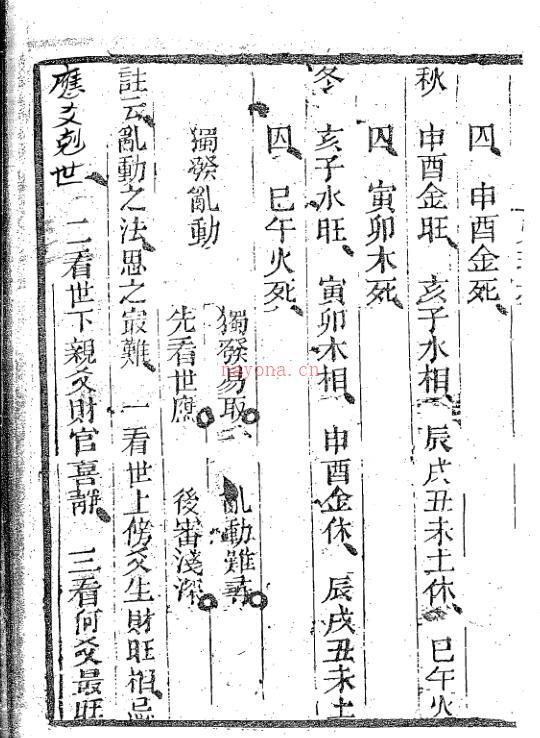 囚 申酉金死
秋 申酉金旺 亥子水相 辰戌丑未土休 巳午火
囚 寅卯木死
冬 亥子水旺 寅卯木相 申酉金休 辰戌丑未土
囚 巳午火死
獨發亂動
獨發易取 亂動難尋
先看世應 後審淺深
註云亂動之法思之寂難 一看世上傍爻生財旺相忌
應爻剋世 二看世下親爻財官喜靜 三看何爻最旺
nayona.cn